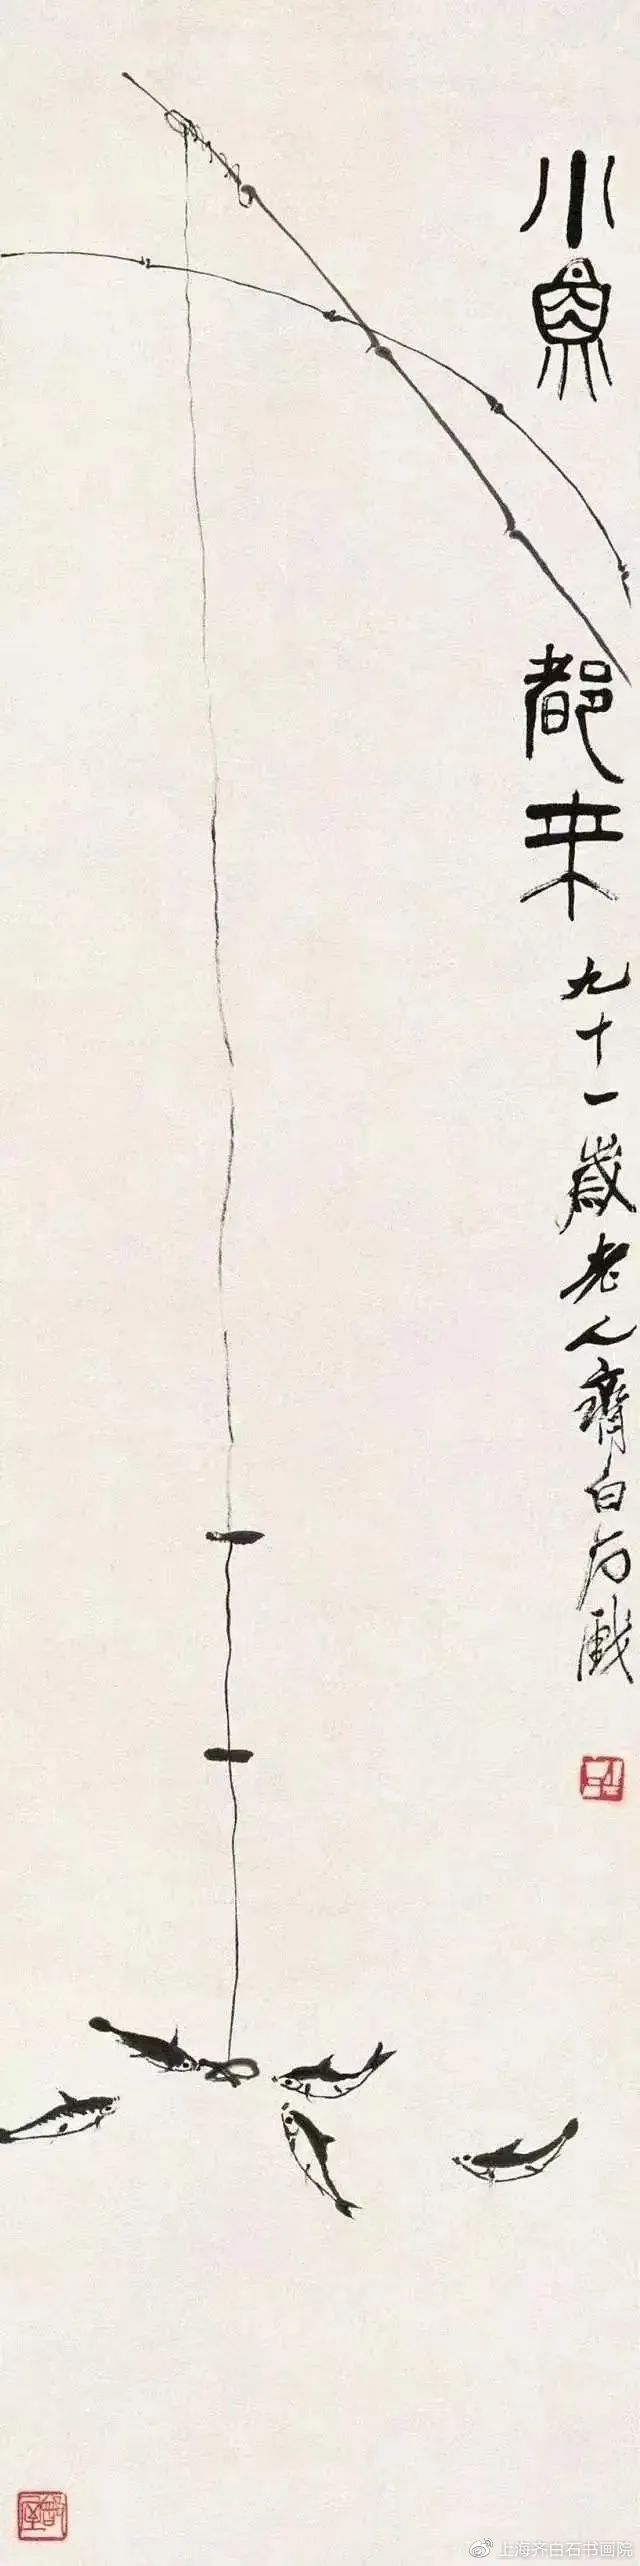 小魚都来
九十一歲老人齊白石戲
@上海齐白石书画院